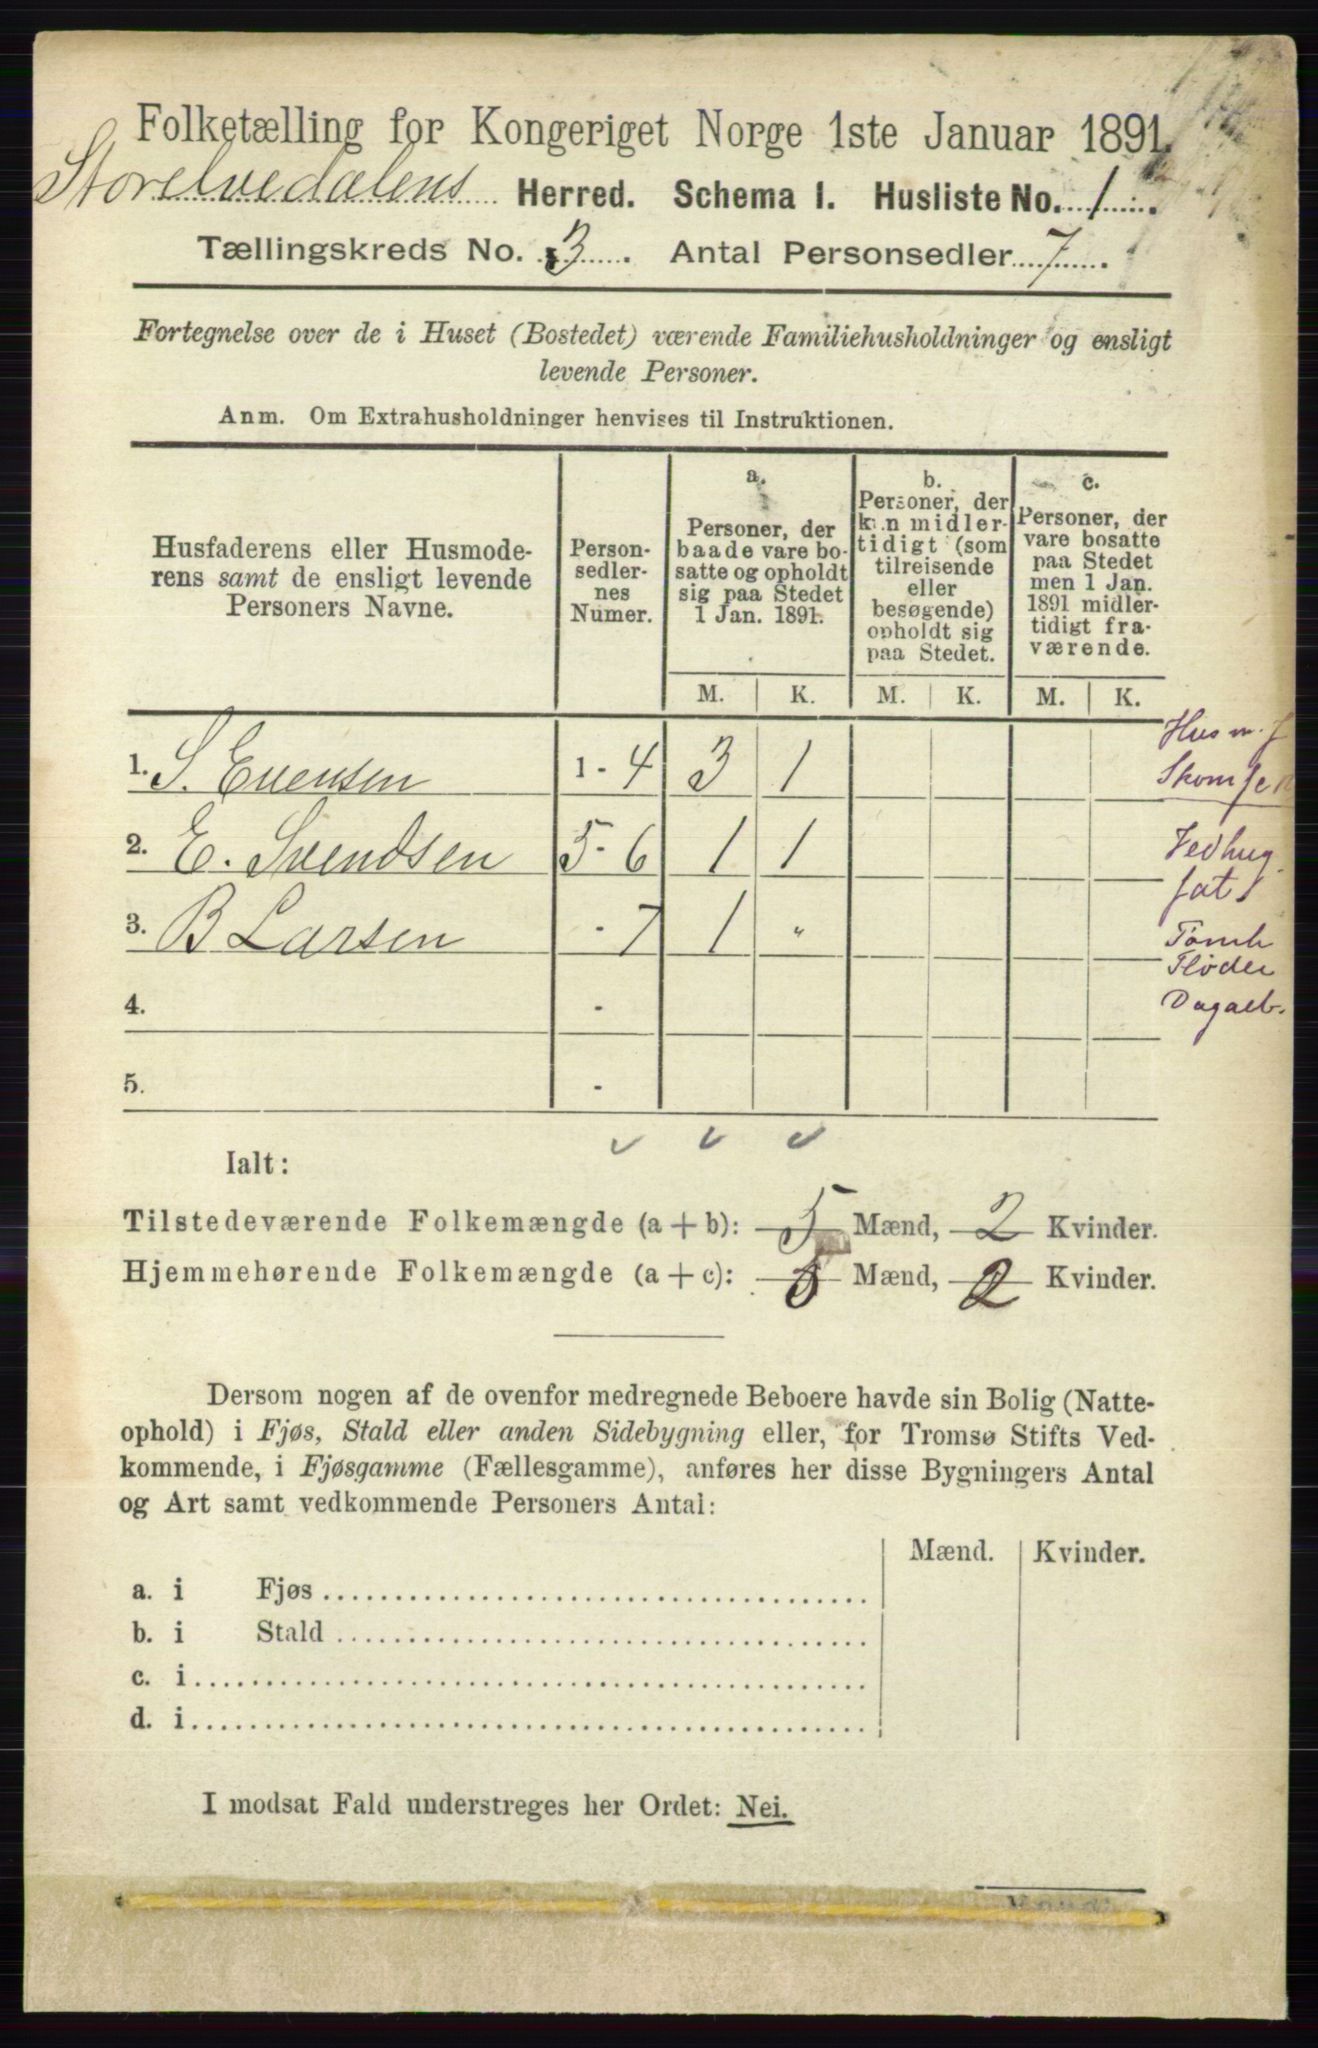 Folketælling for Kongeriget Norge 1ste Januar 1891.
Storelvedalens Herred. Schema I. Husliste No. 1.
Tællingskreds No. 3. Antal Personsedler 7.
Fortegnelse over de i Huset (Bostedet) værende Familiehusholdninger og ensligt
levende Personer.
Anm. Om Extrahusholdninger henvises til Instruktionen.
Husfaderens eller Husmode-
rens samt de ensligt levende
Personers Navne.
Person-
sedler-
nes
Numer.
a.
Personer, der
baade vare bo-
satte og opholdt
sig paa Stedet
1 Jan. 1891.
b.
Personer, der
kun midler-
tidigt (som
tilreisende
eller
besøgende)
opholdt sig
paa Stedet.
c.
Personer, der
vare bosatte
paa Stedet
men 1 Jan.
1891 midler-
tidigt fra-
værende.
M. K. M. K. M. K.
1. S. Evensen 1 - 4 3 1
Husm. J
Skom
2. E. Svendsen 5 - 6 1 1
Vedhug
fat.
3. B Larsen - 7 1 "
Tømh
Fløder
4. -
Dagarb.
5. -
Ialt:
Tilstedeværende Folkemængde (a + b): 5 Mænd, 2 Kvinder.
Hjemmehørende Folkemængde (a + c): 5 Mænd, 2 Kvinder.
Dersom nogen af de ovenfor medregnede Beboere havde sin Bolig (Natte-
ophold) i Fjøs, Stald eller anden Sidebygning eller, for Tromsø Stifts Ved-
kommende, i Fjøsgamme (Fællesgamme), anføres her disse Bygningers Antal
og Art samt vedkommende Personers Antal:
Mænd. Kvinder.
a. i Fjøs
b. i Stald
c. i
d. i
I modsat Fald understreges her Ordet: Nei.